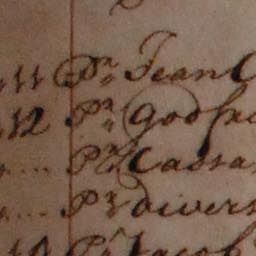 11 Pr. Jean C
12 Pr. Godfre
.... Pr. Cassa
.... Pr. divers
Pr. Jacob